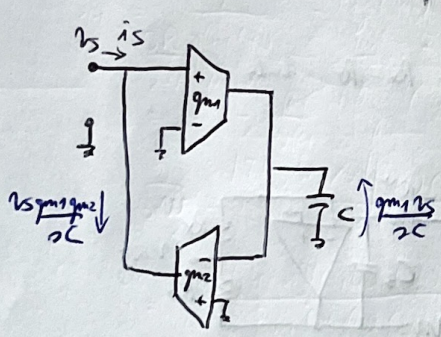 vs is
+
gm1
-
vs gm1 gm2
sC
C
gm1 vs
sC
-
gm2
+